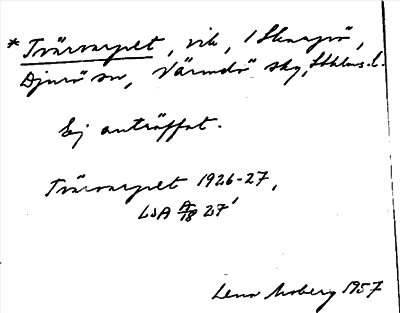 *Tvärvarpet, vik, 1 Skarpö,
Djurö sn, Värmdö skg, Sthlms l.
Ej anträffat.
Tvärvarpet 1926-27,
LSA A/18 27¹
Lena Moberg 1957